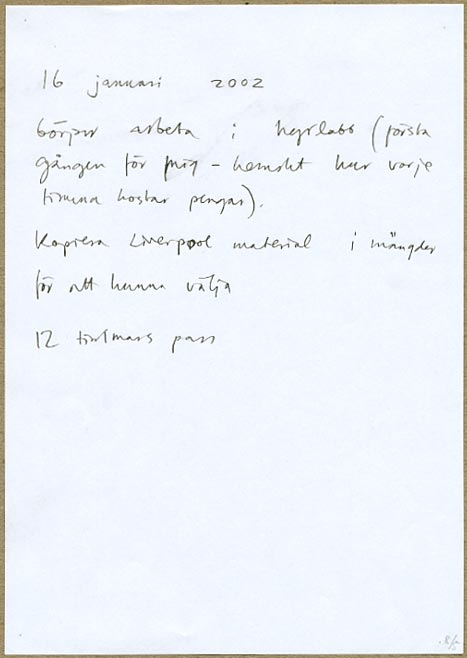 16 januari 2002
börjar arbeta i hyrlabb (första
gången för mig - hemskt hur varje
timma kostar pengar).
Kopiera Liverpool material i mängder
för att kunna välja
12 timmars pass